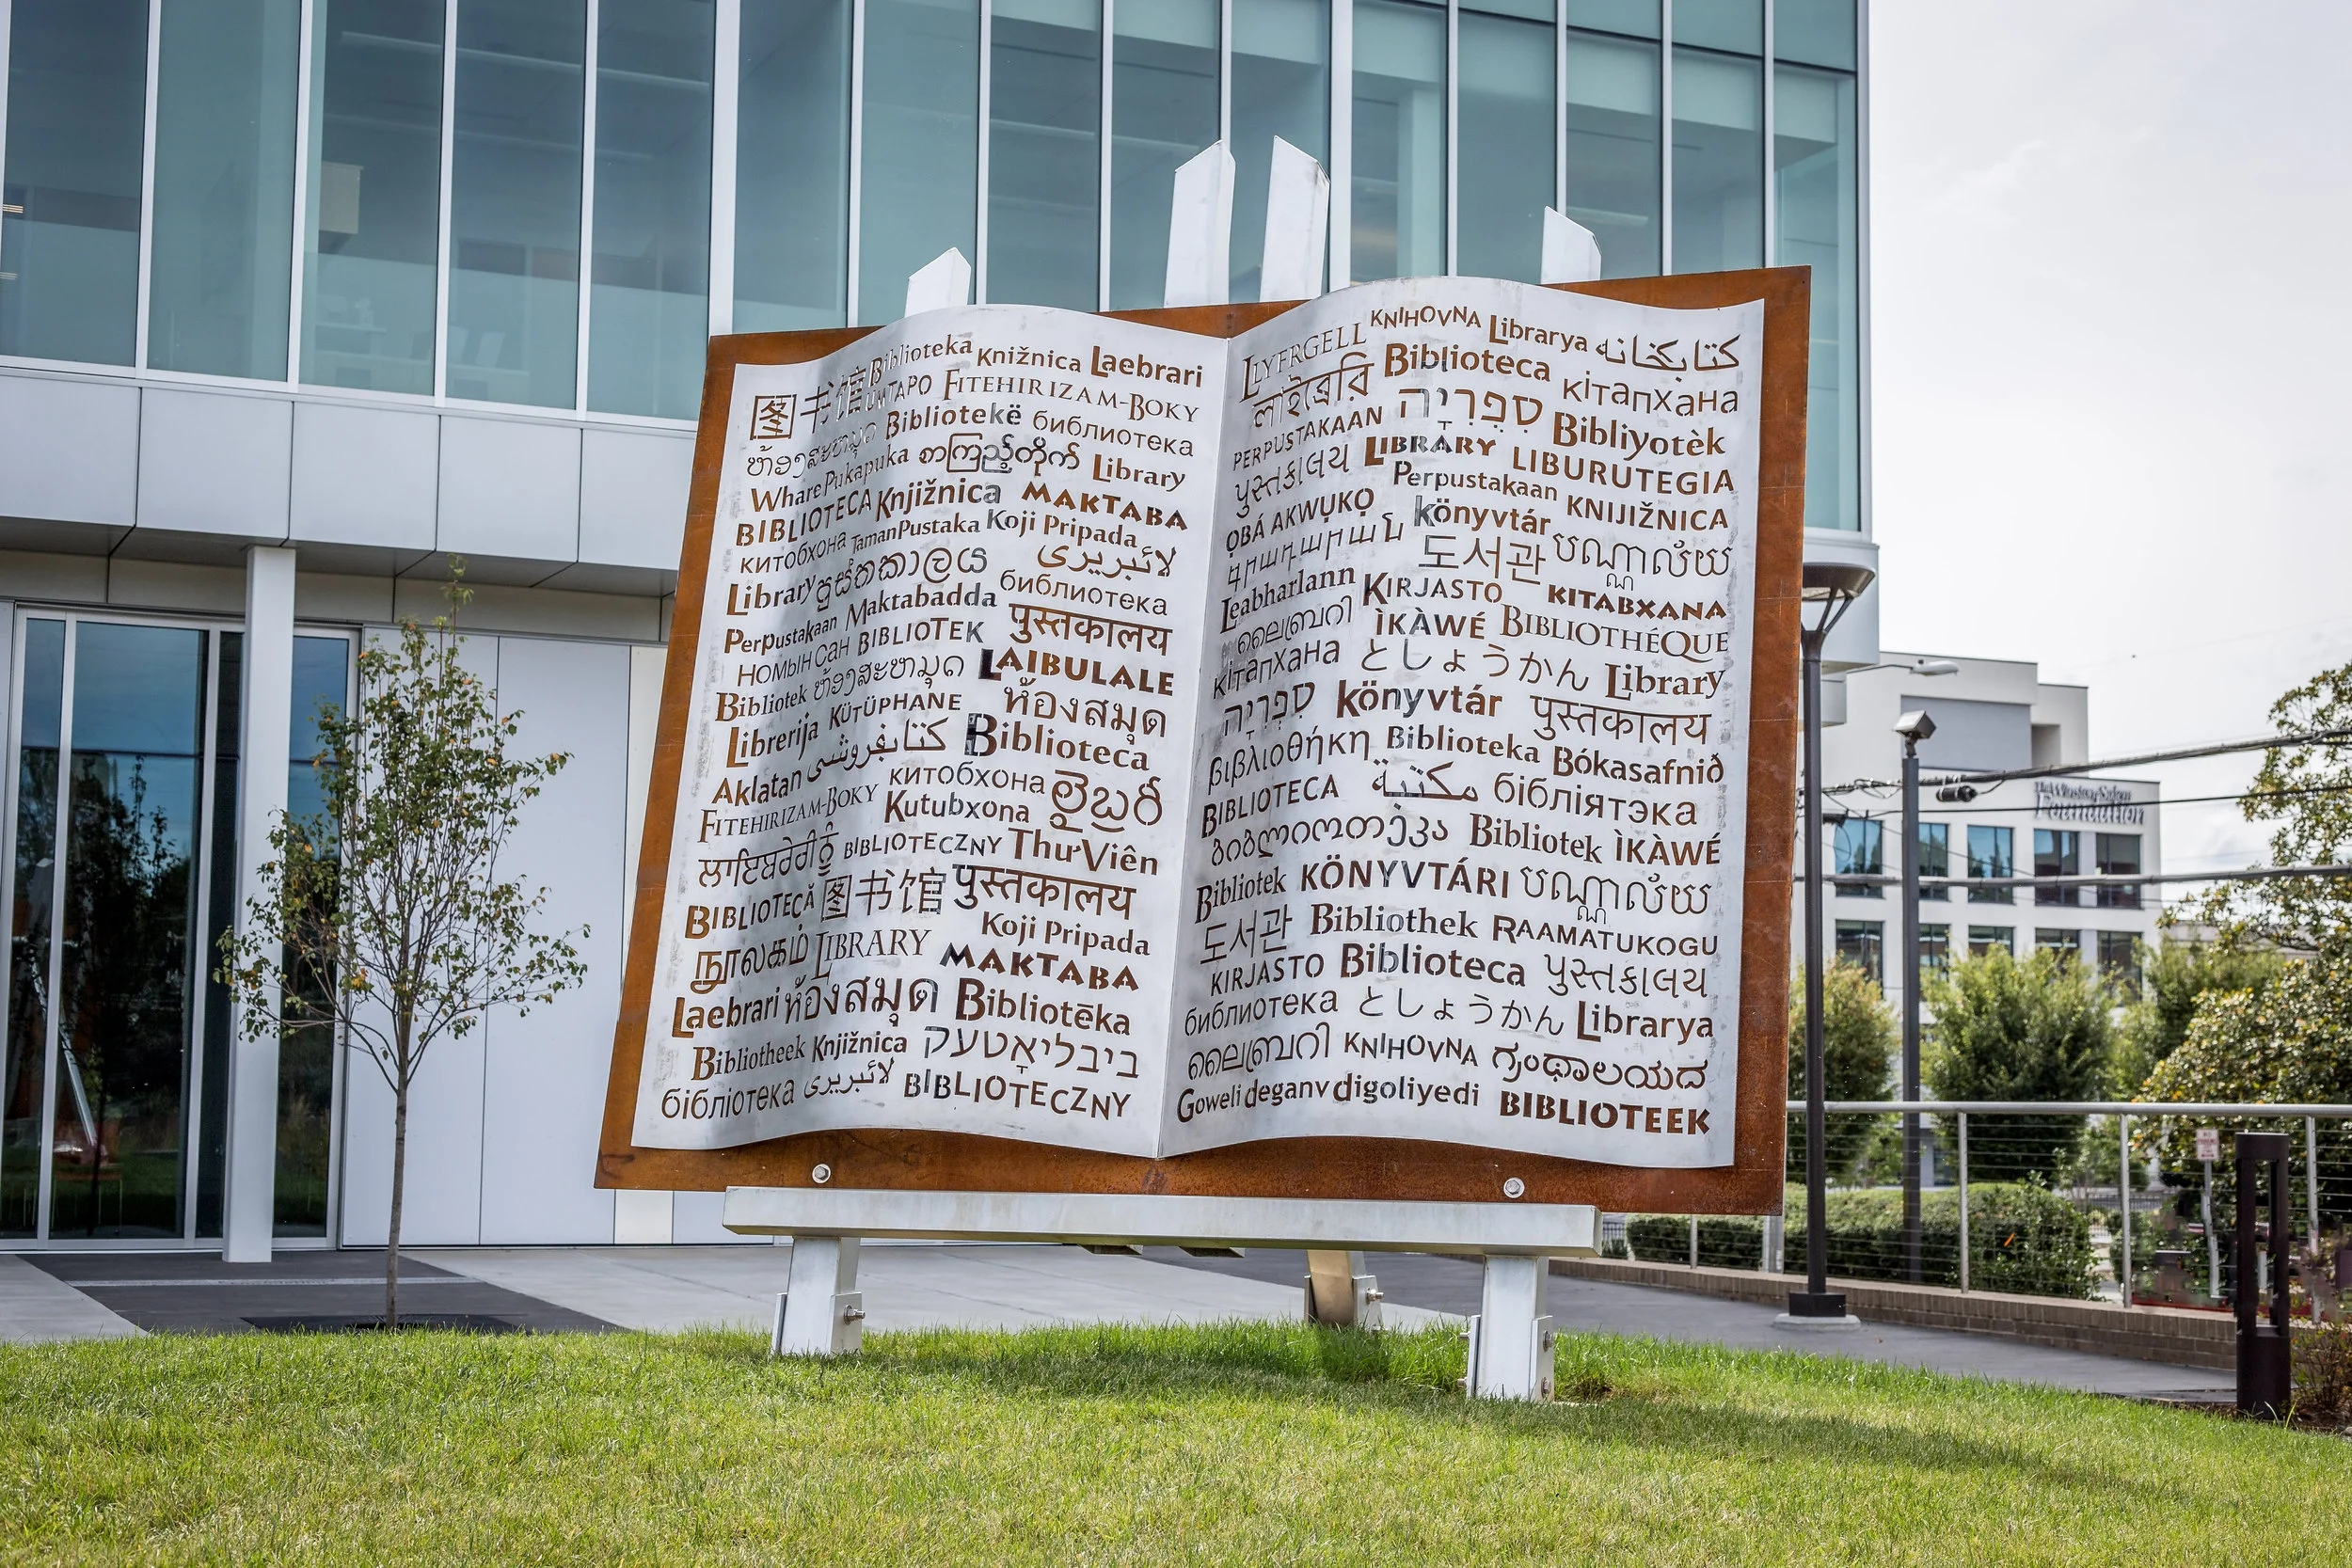 图书馆 Biblioteka Knižnica Laebrari
UMTAPO FITEHIRIZAM-BOKY
ຫ້ອງສະຫມຸດ Bibliotekë библиотека
Whare Pukapuka စာကြည့်တိုက် Library
BIBLIOTECA Knjižnica MAKTABA
китобхона Taman Pustaka Koji Pripada
Library පුස්තකාලය لائبریری
Perpustakaan Maktabadda библиотека
НОМЫН САН BIBLIOTEK पुस्तकालय
Bibliotek ຫ້ອງສະຫມຸດ LAIBULALE
Librerija KÜTÜPHANE ห้องสมุด
Aklatan کتابفروشی Biblioteca
FITEHIRIZAM-BOKY китобхона లైబ్రరీ
Kutubxona
ਲਾਇਬਰੇਰੀ ਨੂੰ BIBLIOTECZNY Thư Viên
BIBLIOTECĂ 图书馆 पुस्तकालय
நூலகம் LIBRARY Koji Pripada
MAKTABA
Laebrari ห้องสมุด Bibliotēka
Bibliotheek Knjižnica ביבליאָטעק
бібліотека لائبریری BIBLIOTECZNY
LLYFRGELL KNIHOVNA Librarya کتابخانه
লাইব্রেরি Biblioteca кітапхана
PERPUSTAKAAN סִפְרִיָה Bibliyotèk
પુસ્તકાલય LIBRARY LIBURUTEGIA
ỌBÁ AKWỤKỌ Perpustakaan KNIJIŽNICA
գրադարան könyvtár
도서관 បណ្ណាល័យ
Leabharlann KIRJASTO KITABXANA
ലൈബ്രറി ÌKÀWÉ BIBLIOTHÉQUE
кітапхана としょうかん Library
סִפְרִיָה könyvtár पुस्तकालय
βιβλιοθήκη Biblioteka Bókasafnið
BIBLIOTECA مكتبة бібліятэка
ბიბლიოთეკა Bibliotek ÌKÀWÉ
Bibliotek KÖNYVTÁRI បណ្ណាល័យ
도서관 Bibliothek RAAMATUKOGU
KIRJASTO Biblioteca પુસ્તકાલય
библиотека としょうかん Librarya
ലൈബ്രറി KNIHOVNA ಗ್ರಂಥಾಲಯದ
Goweli deganv digoliyedi BIBLIOTEEK
The Winston-Salem
Foundation